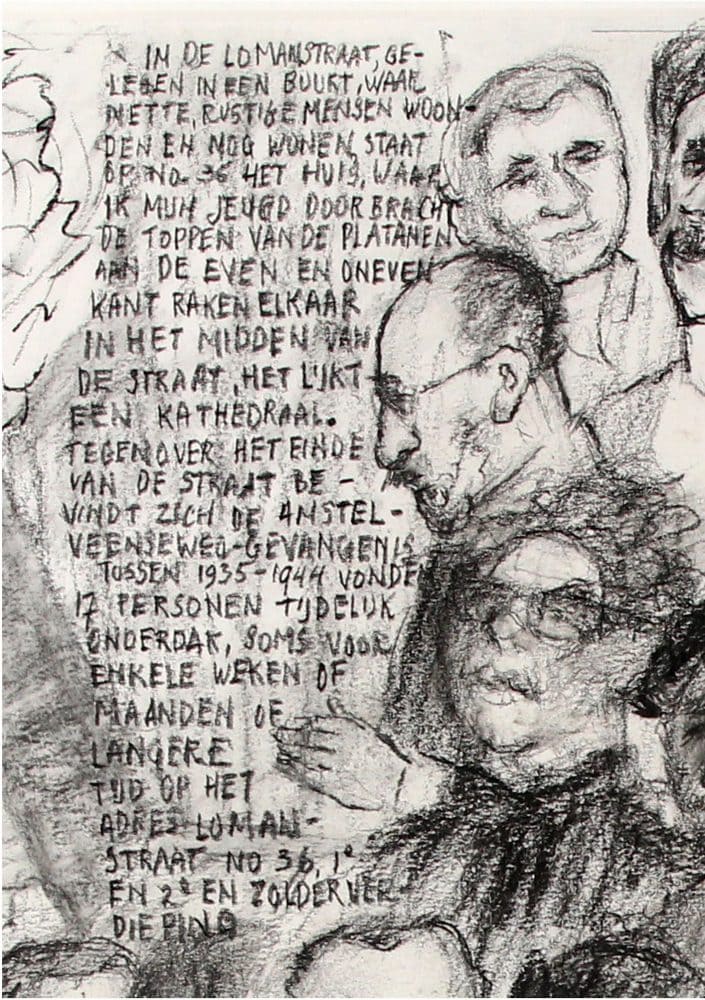 IN DE LOMANSTRAAT, GE-
LEGEN IN EEN BUURT, WAAR
NETTE, RUSTIGE MENSEN WOON-
DEN EN NOG WONEN, STAAT
OP NO. 36 HET HUIS, WAAR
IK MIJN JEUGD DOORBRACHT
DE TOPPEN VAN DE PLATANEN
AAN DE EVEN EN ONEVEN
KANT RAKEN ELKAAR
IN HET MIDDEN VAN
DE STRAAT, HET LIJKT
EEN KATHEDRAAL.
TEGENOVER HET EINDE
VAN DE STRAAT BE-
VINDT ZICH DE AMSTEL-
VEENSEWEG-GEVANGENIS
TUSSEN 1935-1944 VONDEN
17 PERSONEN TIJDELIJK
ONDERDAK, SOMS VOOR
ENKELE WEKEN OF
MAANDEN OF
LANGERE
TIJD OP HET
ADRES LOMAN-
STRAAT NO 36, 1e
EN 2e EN ZOLDERVER-
DIEPING